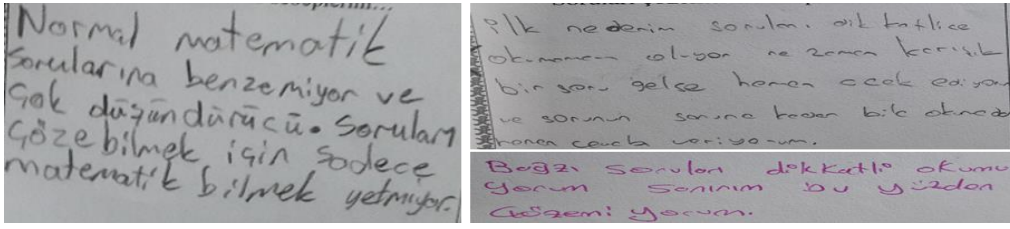 Normal matematik
sorularına benzemiyor ve
çok düşündürücü. Soruları
çözebilmek için sadece
matematik bilmek yetmiyor.
ilk nedenim soruları dikkatlice
okumamam oluyor ne zaman karışık
bir soru gelse hemen
ve sorunun sonuna kadar bile okmada
hemen cevabı veriyorum.
Bağzı soruları dikkatli okumu
yorum sanırım bu yüzden
çözemiyorum.